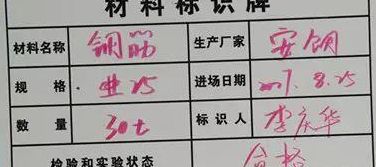 材料标识牌
材料名称 钢筋 生产厂家 安钢
规格 25 进场日期 8.25
数量 30t 标识人 李庆华
检验和实验状态 合格